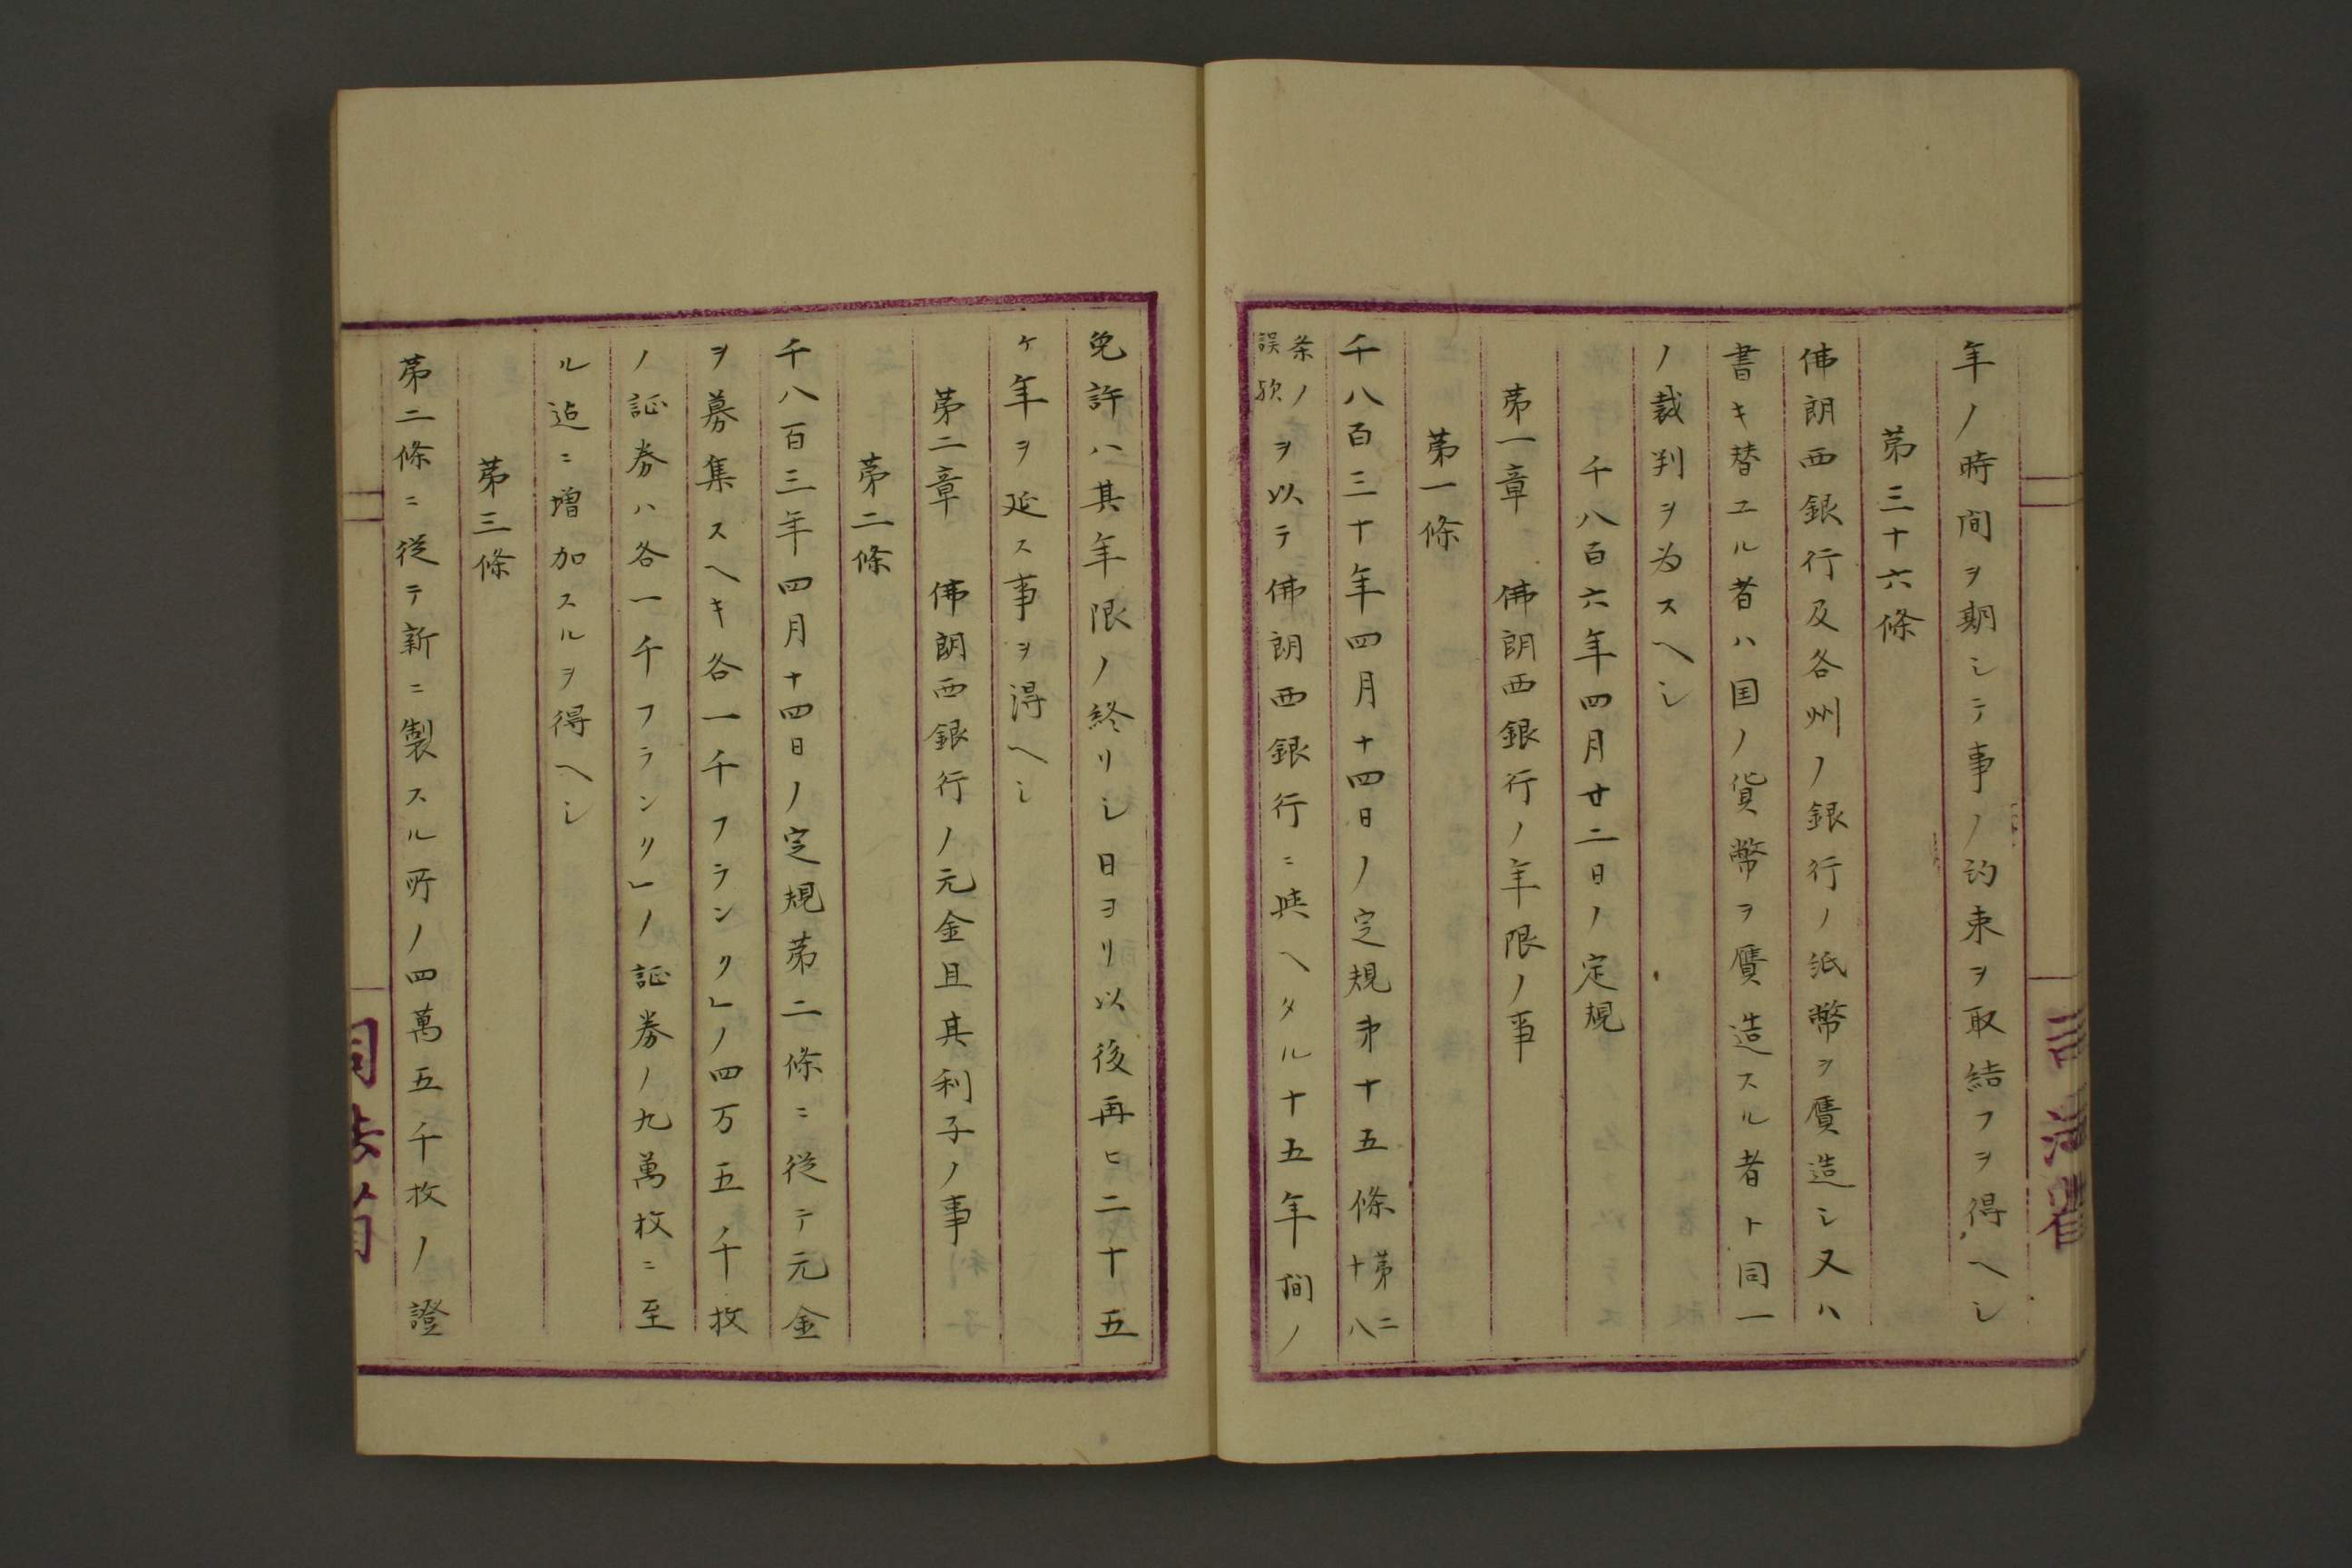 年ノ時間ヲ期シテ事ノ約束ヲ取結フヲ得ヘシ
第三十六條
佛朗西銀行及各州ノ銀行ノ紙幣ヲ贋造シ又ハ
書キ替ユル者ハ国ノ貨幣ヲ贋造スル者ト同一
ノ裁判ヲ為スヘシ
千八百六年四月廿二日ノ定規
第一章 佛朗西銀行ノ年限ノ事
第一條
千八百三十年四月十四日ノ定規第十五條第二十八
条ノ誤歟ヲ以テ佛朗西銀行ニ與ヘタル十五年間ノ
免許ハ其年限ノ終リシ日ヨリ以後再ヒ二十五
ケ年ヲ延ス事ヲ得ヘシ
第二章 佛朗西銀行ノ元金且其利子ノ事
第二條
千八百三年四月十四日ノ定規第二條ニ從テ元金
ヲ募集スヘキ各一千フランク」ノ四万五ノ千枚
ノ証券ハ各一千フランク」ノ証券ノ九萬枚ニ至
ル迠ニ増加スルヲ得ヘシ
第三條
第二條ニ從テ新ニ製スル所ノ四萬五千枚ノ證
司法省